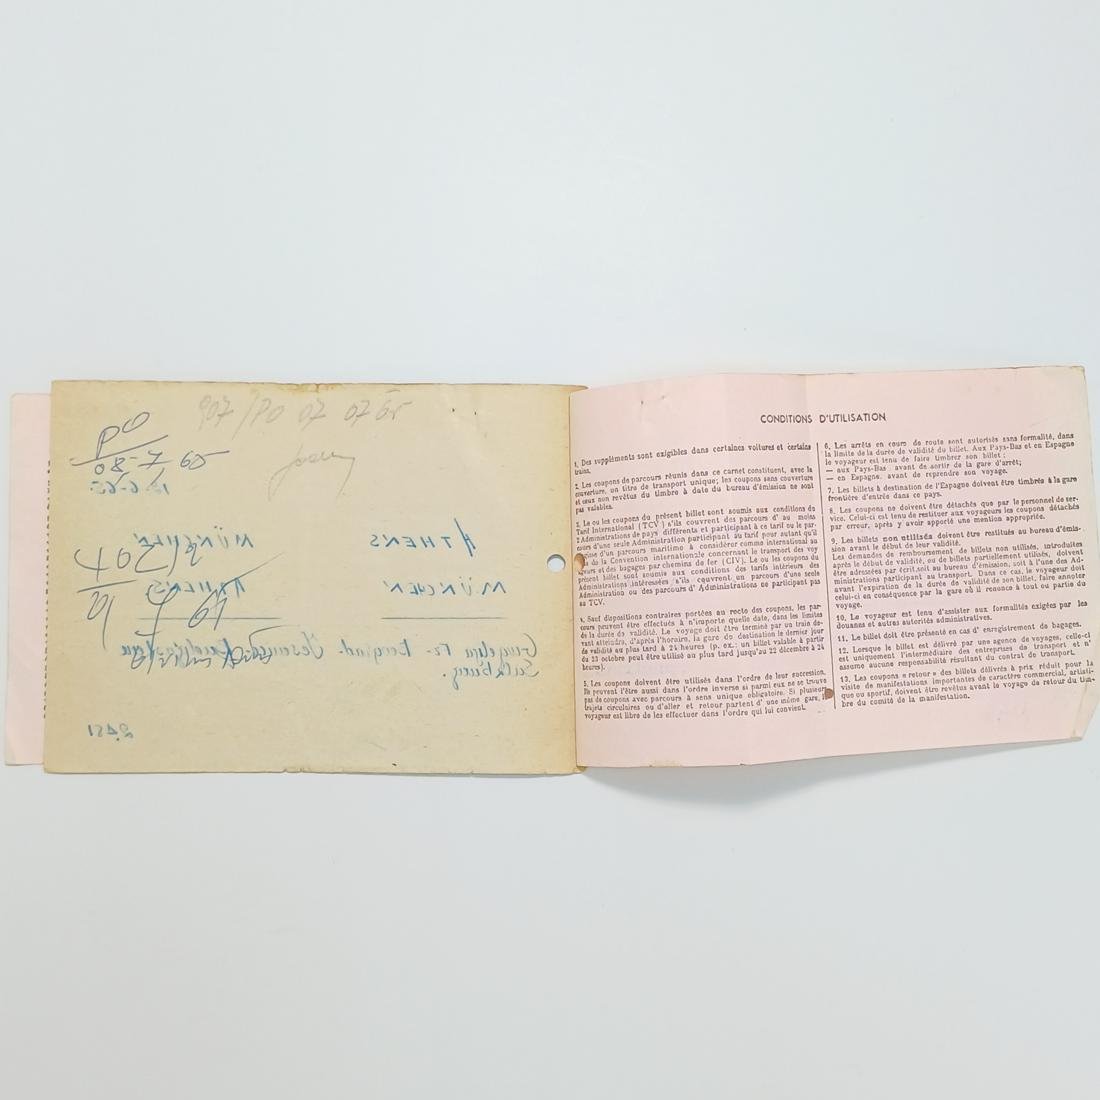 907/PO 07 07 65
PO
08-7 65
ATHENS
MÜNCHEN
MÜNCHEN
ATHENS
Salzburg.
2451
CONDITIONS D'UTILISATION
1. Des suppléments sont exigibles dans certaines voitures et certains
trains.
2. Les coupons de parcours réunis dans ce carnet constituent, avec la
couverture, un titre de transport unique; les coupons sans couverture
et ceux non revêtus du timbre à date du bureau d'émission ne sont
pas valables.
3. Le ou les coupons du présent billet sont soumis aux conditions du
Tarif International (TCV) s'ils couvrent des parcours d' au moins
2 Administrations de pays différents et participant à ce tarif ou le par-
cours d'une seule Administration participant au tarif pour autant qu'il
d'un parcours maritime à considérer comme international au
de la Convention internationale concernant le transport des voy
ageurs et des bagages par chemins de fer (CIV). Le ou les coupons du
présent billet sont soumis aux conditions des tarifs intérieurs des
Administrations intéressées s'ils couvrent un parcours d'une seule
Administration ou des parcours d' Administrations ne participant pas
au TCV.
4. Sauf dispositions contraires portées au recto des coupons, les par-
cours peuvent être effectués à n'importe quelle date, dans les limites
de la durée de validité. Le voyage doit être terminé par un train de-
vant atteindre, d'après l'horaire, la gare de destination le dernier jour
de validité au plus tard à 24 heures (p. ex.: un billet valable à partir
du 23 octobre peut être utilisé au plus tard jusqu'au 22 décembre à 24
heures).
5. Les coupons doivent être utilisés dans l'ordre de leur succession.
Ils peuvent l'être aussi dans l'ordre inverse si parmi eux ne se trouve
pas de coupons avec parcours à sens unique obligatoire. Si plusieurs
trajets circulaires ou d'aller et retour partent d' une même gare, l
voyageur est libre de les effectuer dans l'ordre qui lui convient.
6. Les arrêts en cours de route sont autorisés sans formalité, dans
la limite de la durée de validité du billet. Aux Pays-Bas et en Espagne
le voyageur est tenu de faire timbrer son billet:
— aux Pays-Bas avant de sortir de la gare d'arrêt;
— en Espagne, avant de reprendre son voyage.
7. Les billets à destination de l'Espagne doivent être timbrés à la gare
frontière d'entrée dans ce pays.
8. Les coupons ne doivent être détachés que par le personnel de ser-
vice. Celui-ci est tenu de restituer aux voyageurs les coupons détachés
par erreur, après y avoir apporté une mention appropriée.
9. Les billets non utilisés doivent être restitués au bureau d'émis-
sion avant le début de leur validité.
Les demandes de remboursement de billets non utilisés, introduites
après le début de validité, ou de billets partiellement utilisés, doivent
être adressées par écrit, soit au bureau d'émission, soit à l'une des Ad-
ministrations participant au transport. Dans ce cas, le voyageur doit
avant l'expiration de la durée de validité de son billet, faire annoter
celui-ci en conséquence par la gare où il renonce à tout ou partie du
voyage.
10. Le voyageur est tenu d'assister aux formalités exigées par les
douanes et autres autorités administratives.
11. Le billet doit être présenté en cas d' enregistrement de bagages.
12. Lorsque le billet est délivré par une agence de voyages, celle-ci
est uniquement l'intermédiaire des entreprises de transport et n'
assume aucune responsabilité résultant du contrat de transport.
13. Les coupons « retour » des billets délivrés à prix réduit pour la
visite de manifestations importantes de caractère commercial, artisti-
que ou sportif, doivent être revêtus avant le voyage de retour du tim-
bre du comité de la manifestation.